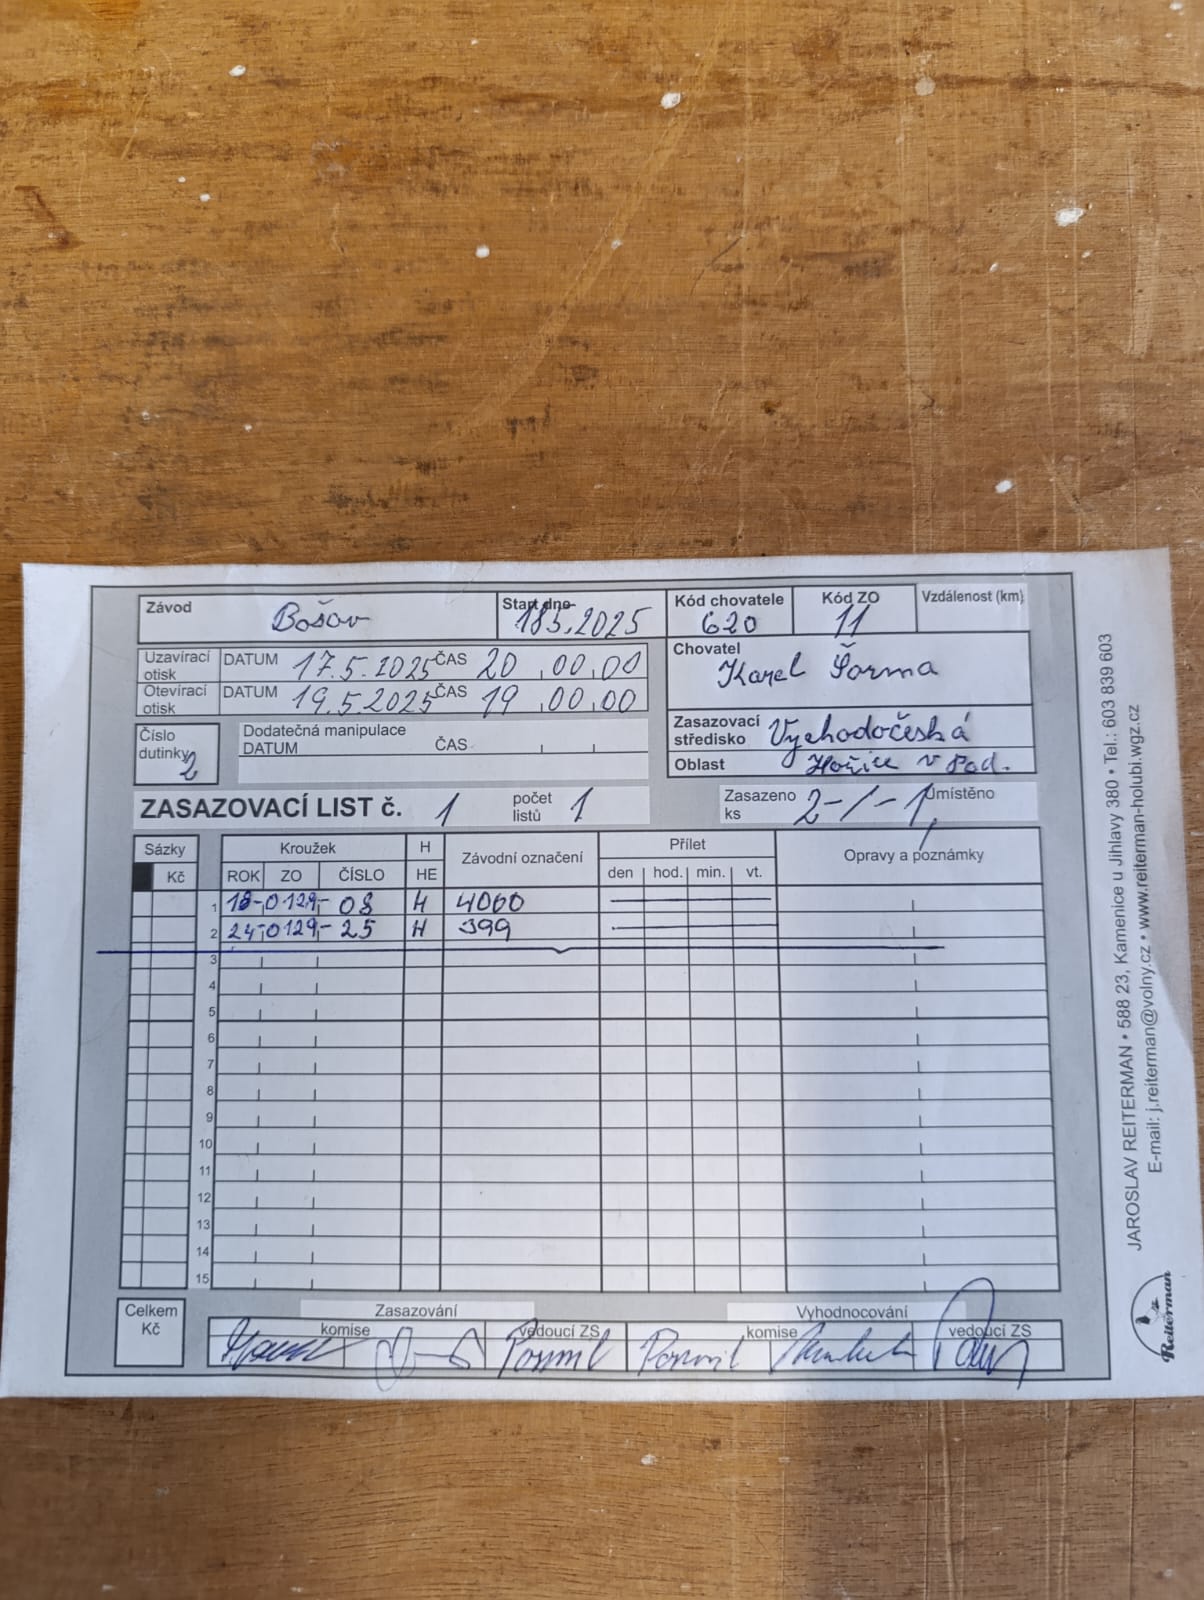 Závod Bošov Start dne 18.5.2025 Kód chovatele 620 Kód ZO 11 Vzdálenost (km)
Uzavírací otisk DATUM 17.5.2025 ČAS 20,00,00
Otevírací otisk DATUM 19.5.2025 ČAS 19,00,00
Chovatel Karel Šorma
Číslo dutinky 2
Dodatečná manipulace
DATUM ČAS
Zasazovací středisko Východočeská
Oblast Hořice v Pod.
ZASAZOVACÍ LIST č. 1 počet listů 1 Zasazeno ks 2-/-1, Umístěno
Sázky Kroužek H Závodní označení Přílet Opravy a poznámky
Kč ROK ZO ČÍSLO HE den hod. min. vt.
1 18-0129-08 H 4060
2 24-0129-25 H 399
3
4
5
6
7
8
9
10
11
12
13
14
15
Celkem Kč
Zasazování Vyhodnocování
komise vedoucí ZS komise vedoucí ZS
JAROSLAV REITERMAN • 588 23, Kamenice u Jihlavy 380 • Tel.: 603 839 603
E-mail: j.reiterman@volny.cz • www.reiterman-holubi.wgz.cz
Reiterman